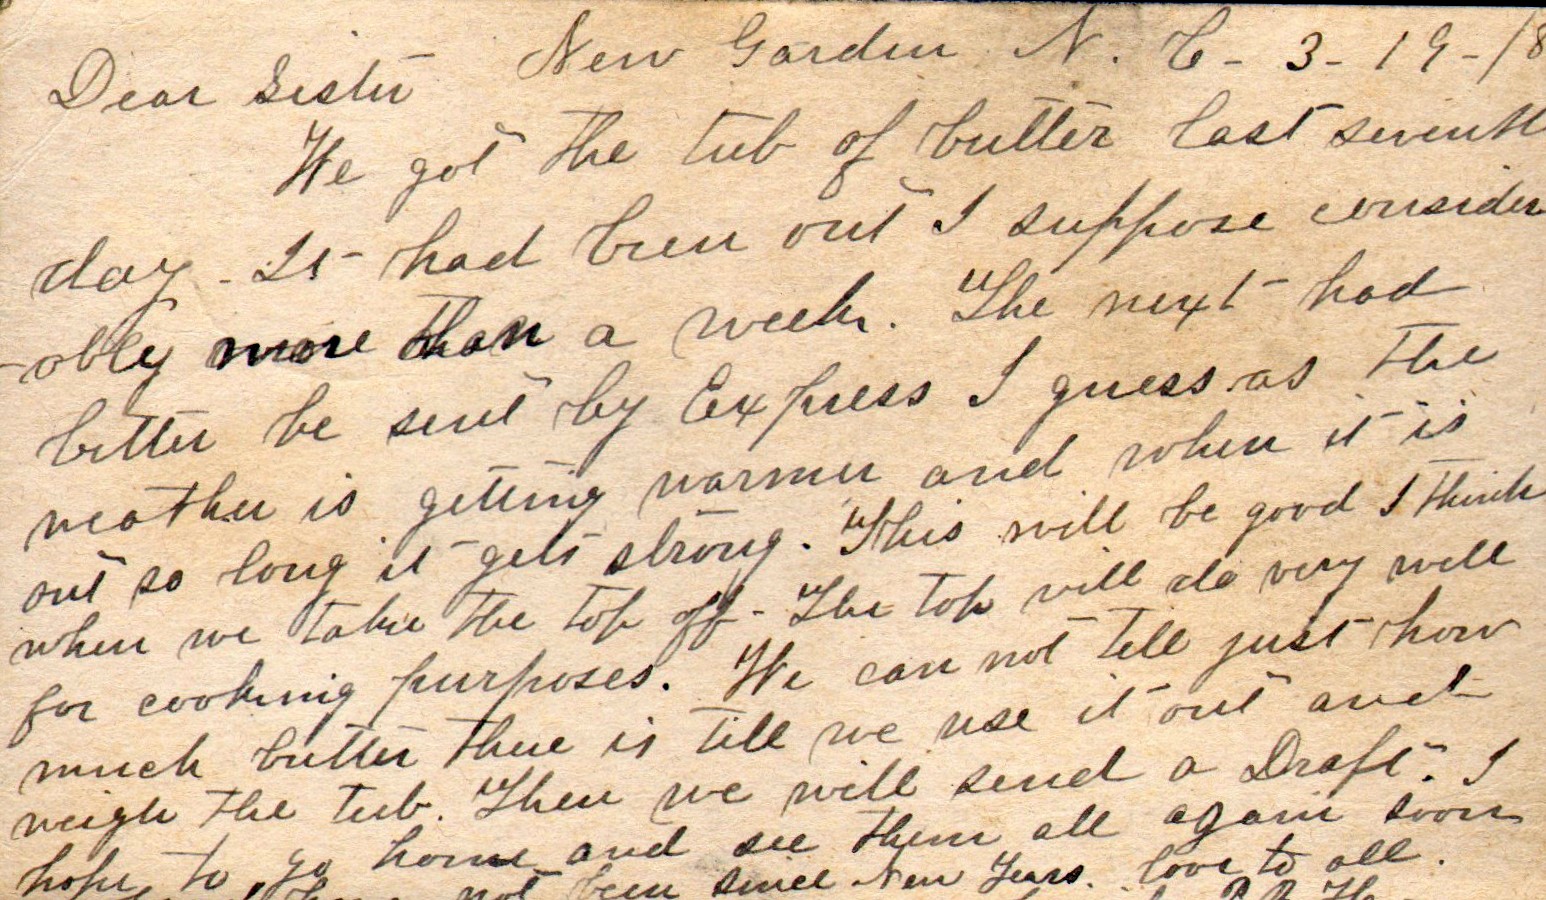 New Garden N. C - 3 - 19 - /8
Dear Sister
We got the tub of butter last seventh
day - It had been out I suppose consider
-ably more than a week. The next had
better be sent by Express I guess as the
weather is getting warmer and when it is
out so long it gets strong. This will be good I think
when we take the top off - The top will do very well
for cooking purposes. We can not tell just how
much butter there is till we use it out and
weigh the tub. Then we will send a Draft. I
hope to go home and see them all again soon
not been since New Years. love to all.